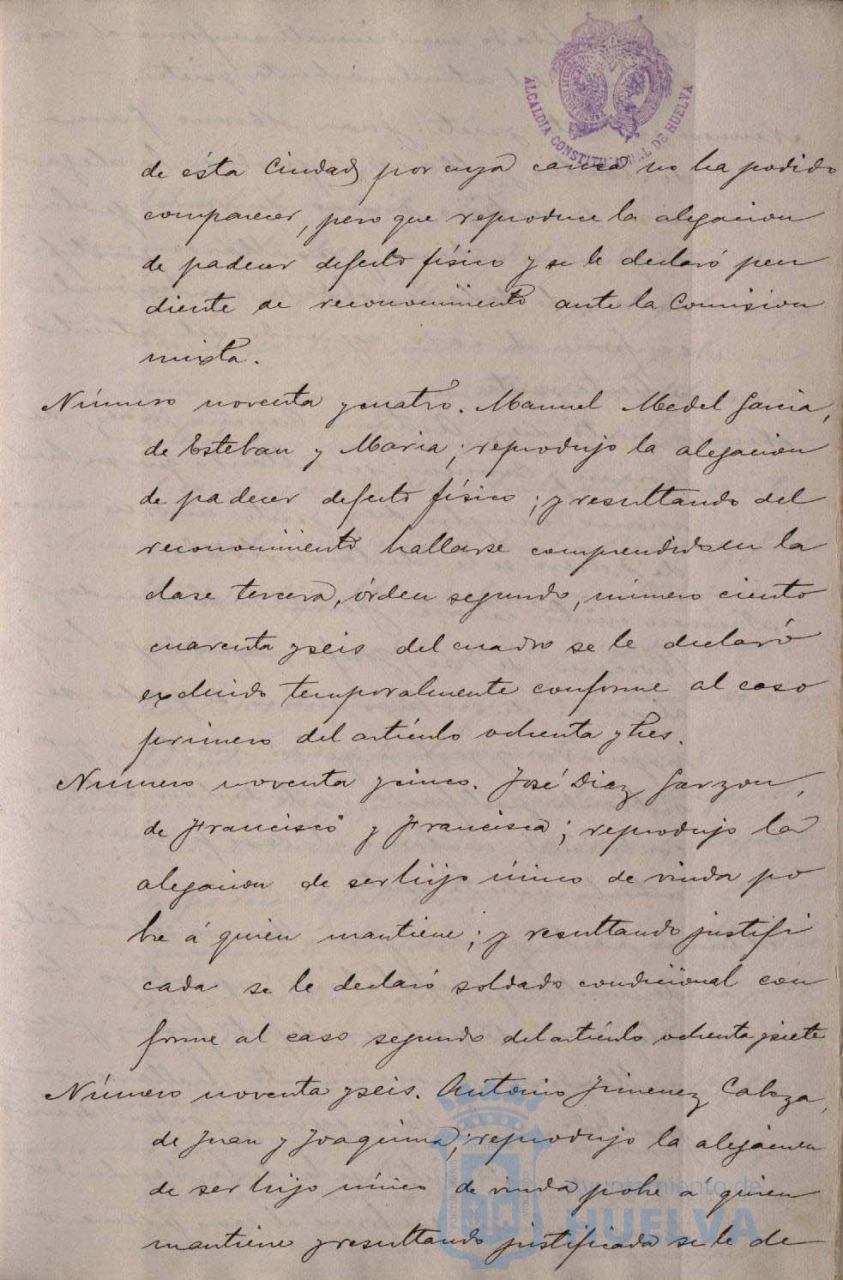 ALCALDIA CONSTITUCIONAL DE HUELVA
de ésta Ciudad, por cuya causa no ha podido
comparecer, pero que reproduce la alegacion
de padecer defecto físico y se le declaró pen
diente de reconocimiento ante la Comision
mixta.
Número noventa y cuatro. Manuel Medel Garcia,
de Esteban y Maria; reprodujo la alegacion
de padecer defecto físico; y resultando del
reconocimiento hallarse comprendido en la
clase tercera, órden segundo, número ciento
cuarenta y seis del cuadro se le declaró
excluido temporalmente conforme al caso
primero del artículo ochenta y tres.
Número noventa y cinco. José Diaz Garzon,
de Francisco y Francisca; reprodujo la
alegacion de ser hijo único de viuda po
bre á quien mantiene; y resultando justifi
cada se le declaró soldado condicional con
forme al caso segundo del artículo ochenta y siete
Número noventa y seis. Antonio Jimenez Cabeza,
de Juan y Joaquina; reprodujo la alegacion
de ser hijo único de viuda pobre a quien
mantiene y resultando justificada se le de
Ayuntamiento de
HUELVA